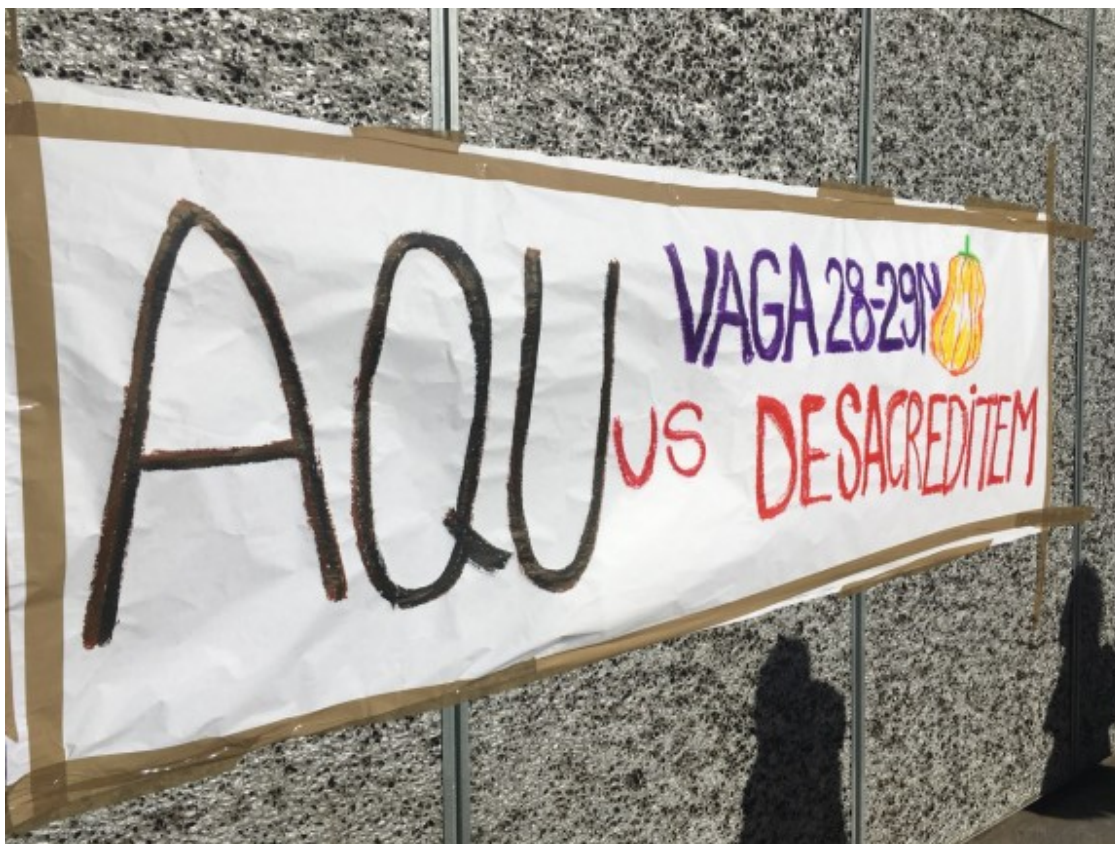 AQU
VAGA 28-29N
US DESACREDiTEM